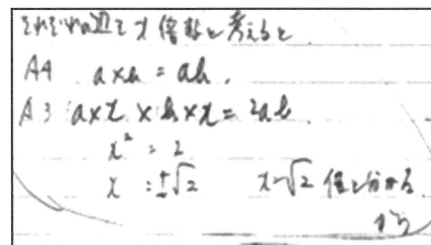 それぞれの辺をx倍数と考えると
A4 a×h = ah.
A3 a×x×h×x=2ah.
x² = 2
x = ±√2 x=√2 倍と分かる